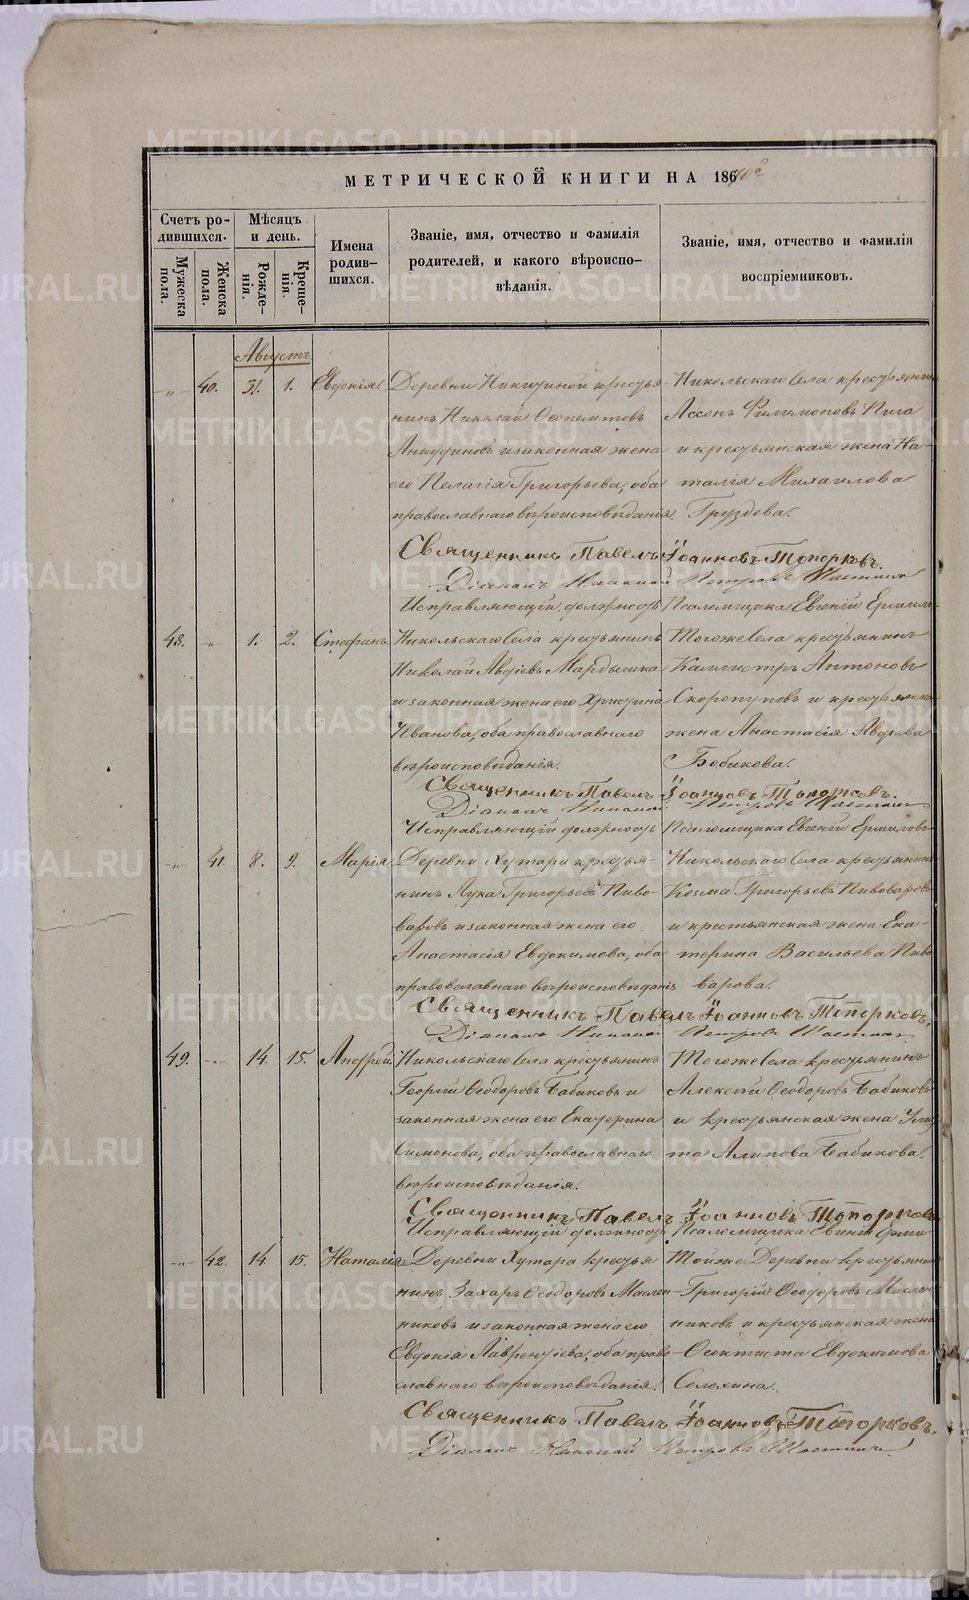 МЕТРИЧЕСКОЙ КНИГИ НА 186
Счетъ родившихся.
Мѣсяцъ и день.
Мужеска пола.
Женска пола.
Рожденія.
Крещенія.
Имена родившихся.
Званіе, имя, отчество и фамилія родителей, и какого вѣроисповѣданія.
Званіе, имя, отчество и фамилія воспріемниковъ.
Августъ
„ 40. 31. 1. Евдокія.
Деревни Никитиной крестья-
нинъ Николай
и законная жена
его Пелагія Григорьева, оба
православнаго вѣроисповѣданія.
Никольскаго Села крестьянинъ
Филимоновъ
и крестьянская жена На-
талія Михаилова
Груздева.
Священникъ Павелъ Іоанновъ Топорковъ.
Діаконъ Николай Петровъ
Исправляющій должность Псаломщика Евгеній
48. „ 1. 2. Стефанъ.
Никольскаго Села крестьянинъ
Николай Авдіевъ
и законная жена его Христина
Иванова, оба православнаго
вѣроисповѣданія.
Того же Села крестьянинъ
Каллистръ Антоновъ
Скоропуповъ и крестьянская
жена Анастасія Авдіева
Бобикова.
Священникъ Павелъ Іоанновъ Топорковъ.
Діаконъ Николай Петровъ
Исправляющій должность Псаломщика Евгеній Ермиловъ
„ 41. 8. 9. Марія
Деревни Хутора крестья-
нинъ Лука Григорьевъ Пиво-
варовъ и законная жена его
Анастасія Евдокимова, оба
православнаго вѣроисповѣданія
Никольскаго Села крестьянинъ
Козма Григорьевъ Пивоваровъ
и крестьянская жена Ека-
терина Васильева Пиво
варова.
Священникъ Павелъ Іоанновъ Топорковъ.
Діаконъ Николай Петровъ
49. „ 14 15. Андрей.
Никольскаго Села крестьянинъ
Георгій Ѳеодоровъ Бабиковъ и
законная жена его Екатерина
Симонова, оба православнаго
вѣроисповѣданія.
Того же Села крестьянинъ
Алексѣй Ѳеодоровъ Бабиковъ
и крестьянская жена Ули
та Алипова Бабикова.
Священникъ Павелъ Іоанновъ Топорковъ
Исправляющій должность Псаломщика Евгеній
„ 42. 14 15. Наталія
Деревни Хутора крестья
нинъ Захаръ Ѳеодоровъ Маслен-
никовъ и законная жена его
Евдокія Лаврентіева, оба право
славнаго вѣроисповѣданія.
Той же Деревни крестьянинъ
Григорій Ѳеодоровъ Маслен
никовъ и крестьянская жена
Ѳеоктиста Евдокимова
Солохина.
Священникъ Павелъ Іоанновъ Топорковъ.
Діаконъ Николай Петровъ
METRIKI.GASO-URAL.RU